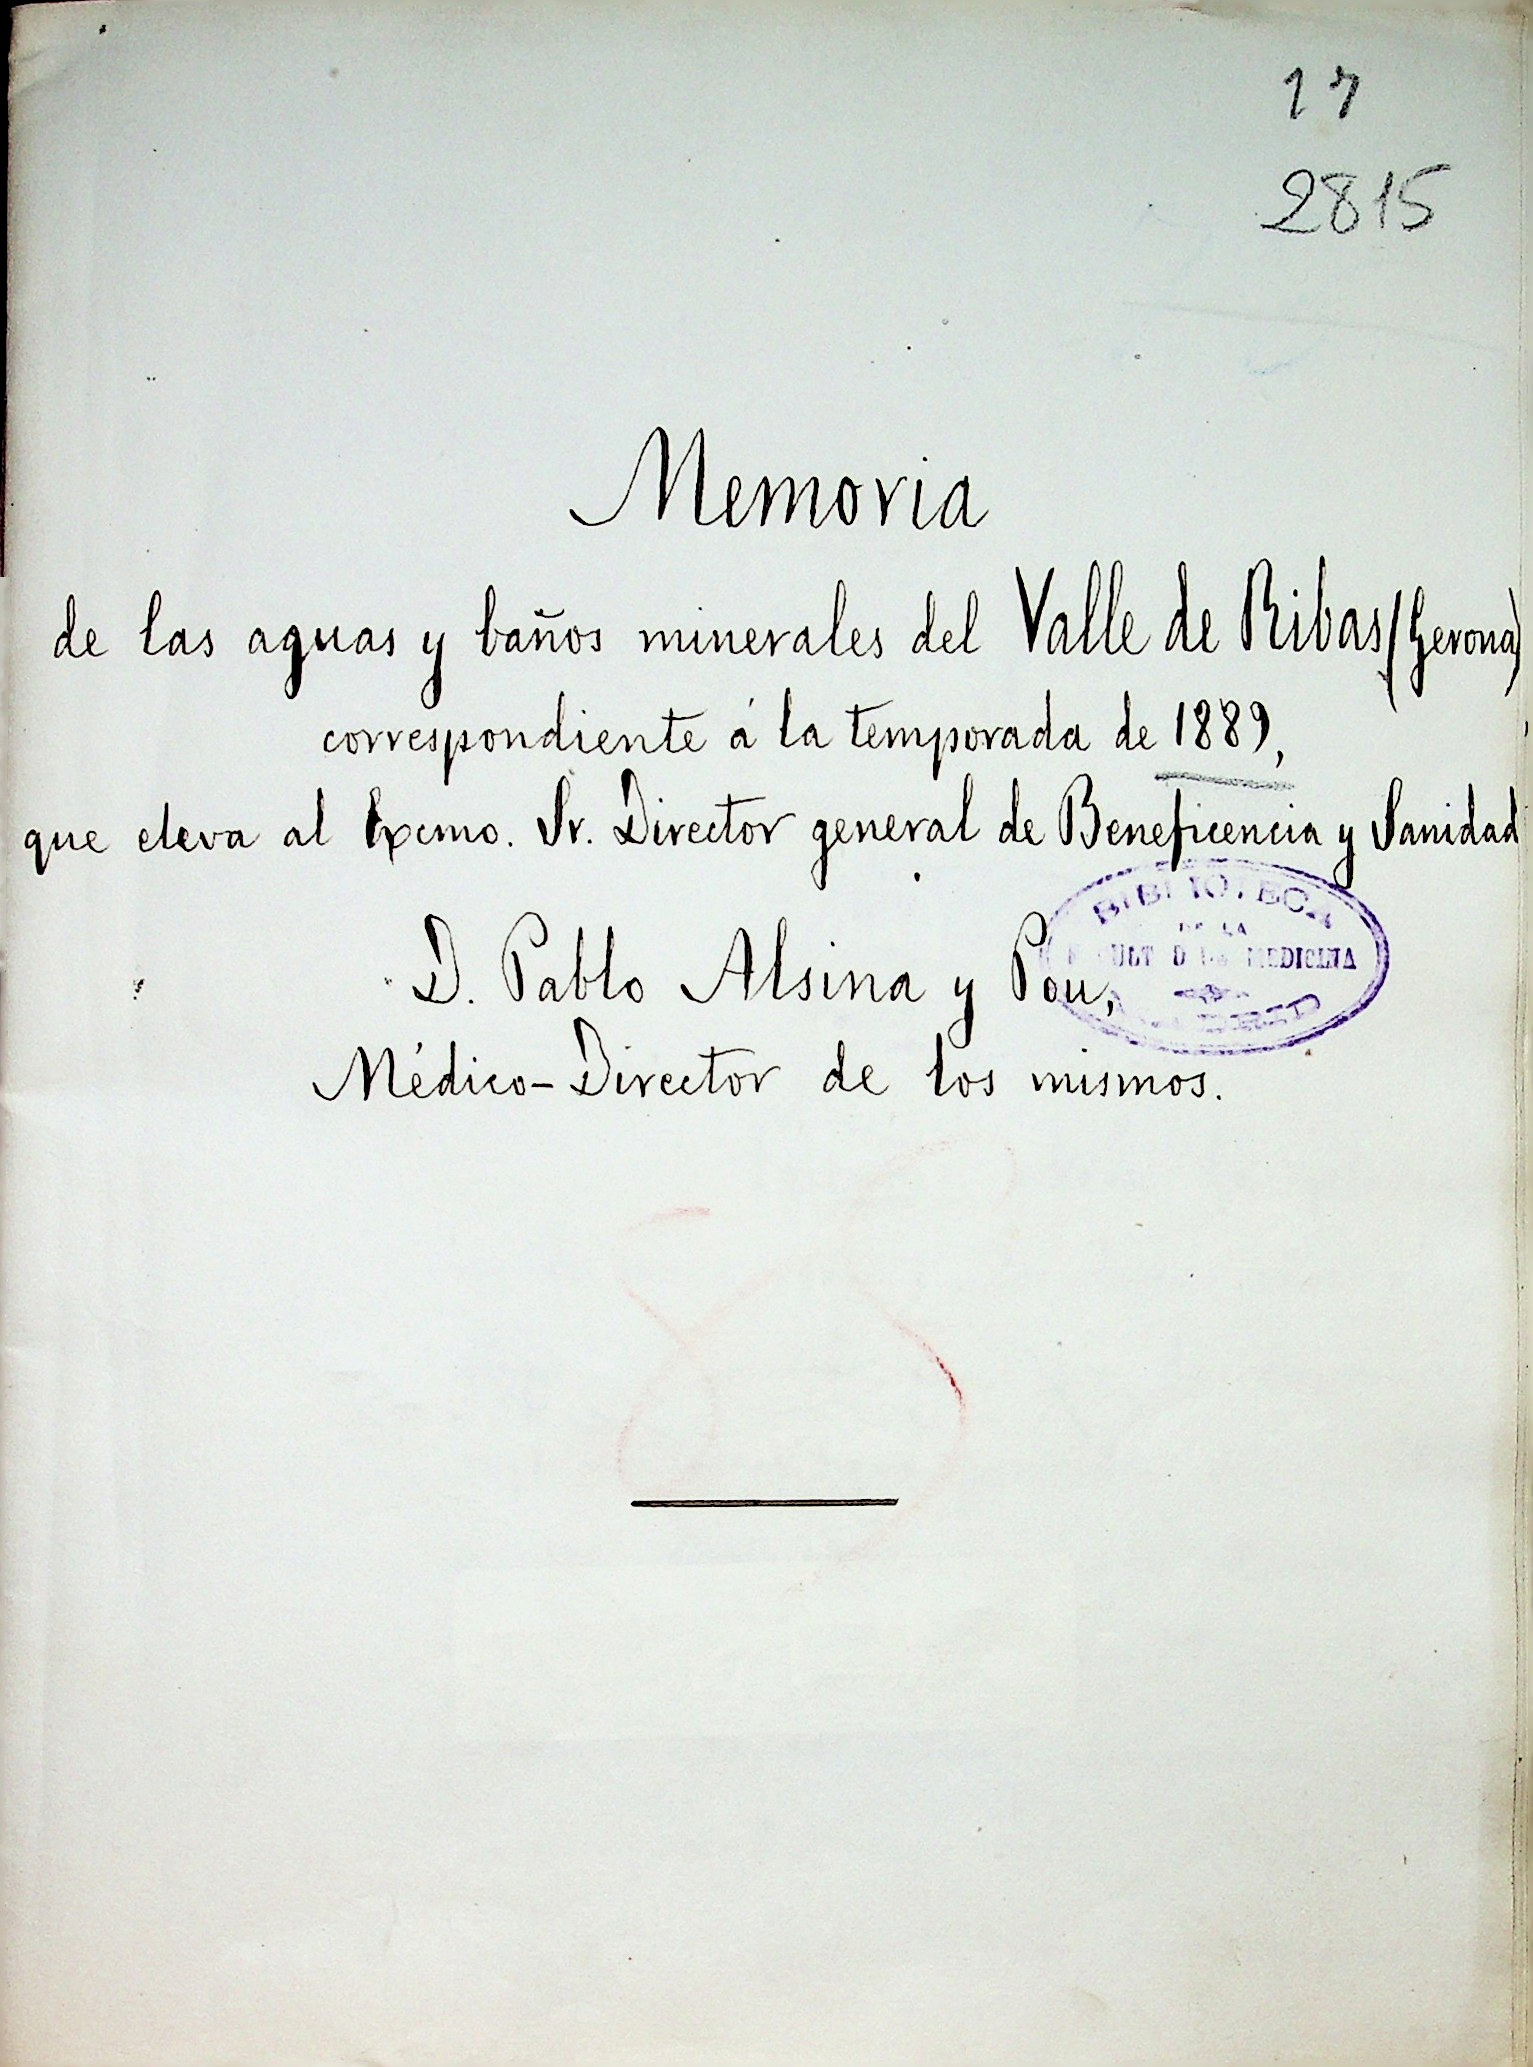 17
2815
Memoria
de las aguas y baños minerales del Valle de Ribas (Gerona)
correspondiente á la temporada de 1889,
que eleva al Excmo. Sr. Director general de Beneficencia y Sanidad
D. Pablo Alsina y Pou,
BIBLIOTECA
DE LA
FACULT DE MEDICINA
MADRID
Médico-Director de los mismos.